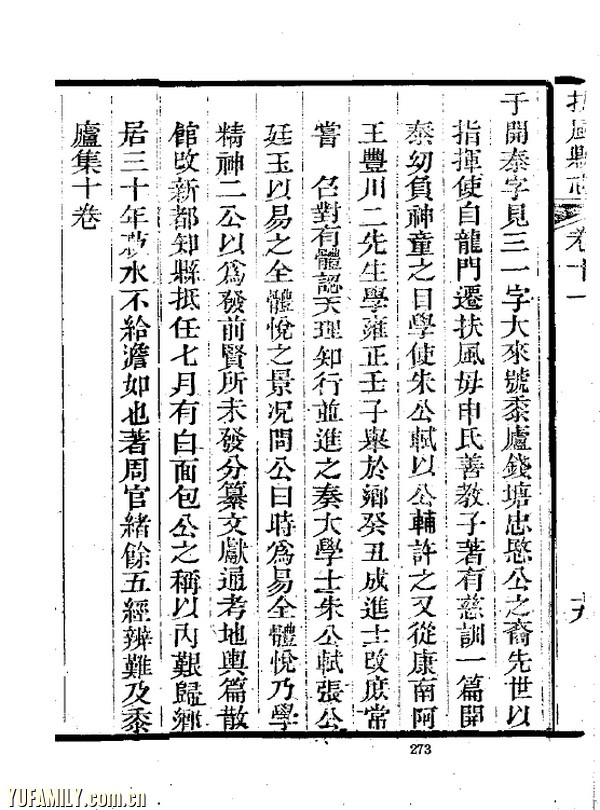 扶風縣志 卷十一 十九
于開泰字見三一字大來號黍廬錢塘忠愍公之裔先世以
指揮使自龍門遷扶風毋申氏善教子著有慈訓一篇開
泰幼負神童之目學使朱公軾以公輔許之又從康南阿
王豐川二先生學雍正壬子舉於鄉癸丑成進士改庶常
嘗 召對有體認天理知行並進之奏大學士朱公軾張公
廷玉以易之全體悅之景況問公曰時爲易全體悅乃學
精神二公以爲發前賢所未發分纂文獻通考地輿篇散
館改新都知縣抵任七月有白面包公之稱以內艱歸鄉
居三十年菽水不給澹如也著周官緒餘五經辨難及黍
廬集十卷
273
YUFAMILY.com.cn